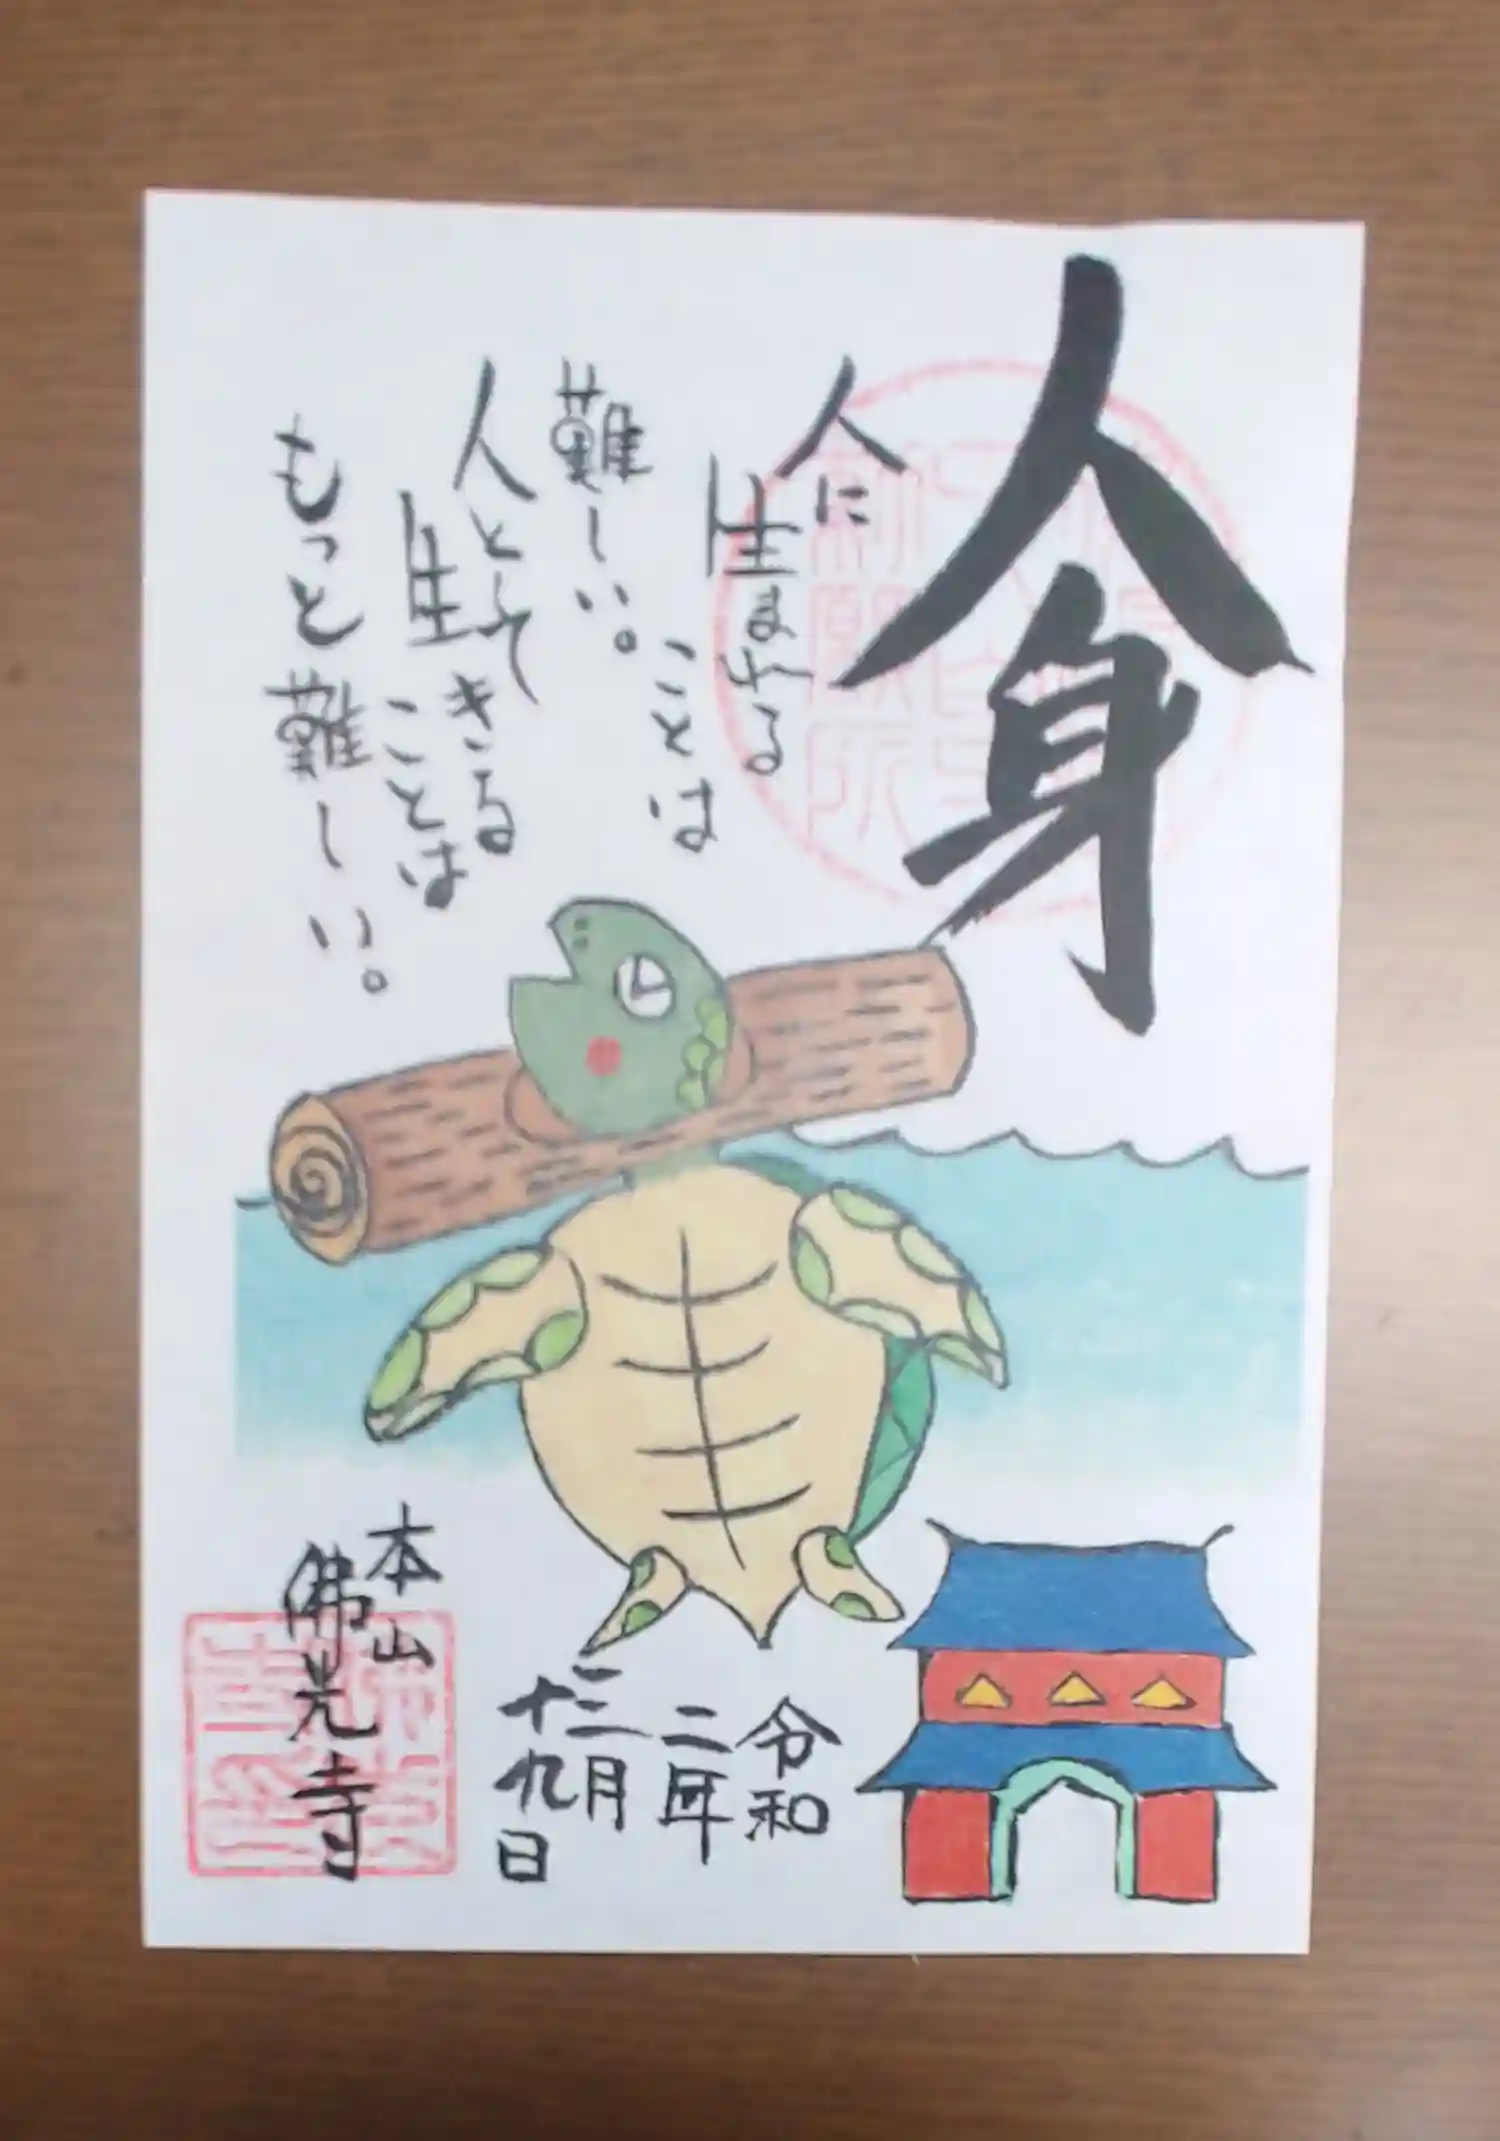 人身
人に
生まれる
ことは
難しい。
人として
生きる
ことは
もっと難しい。
令和
二年
十二月
十九日
本山
佛光寺